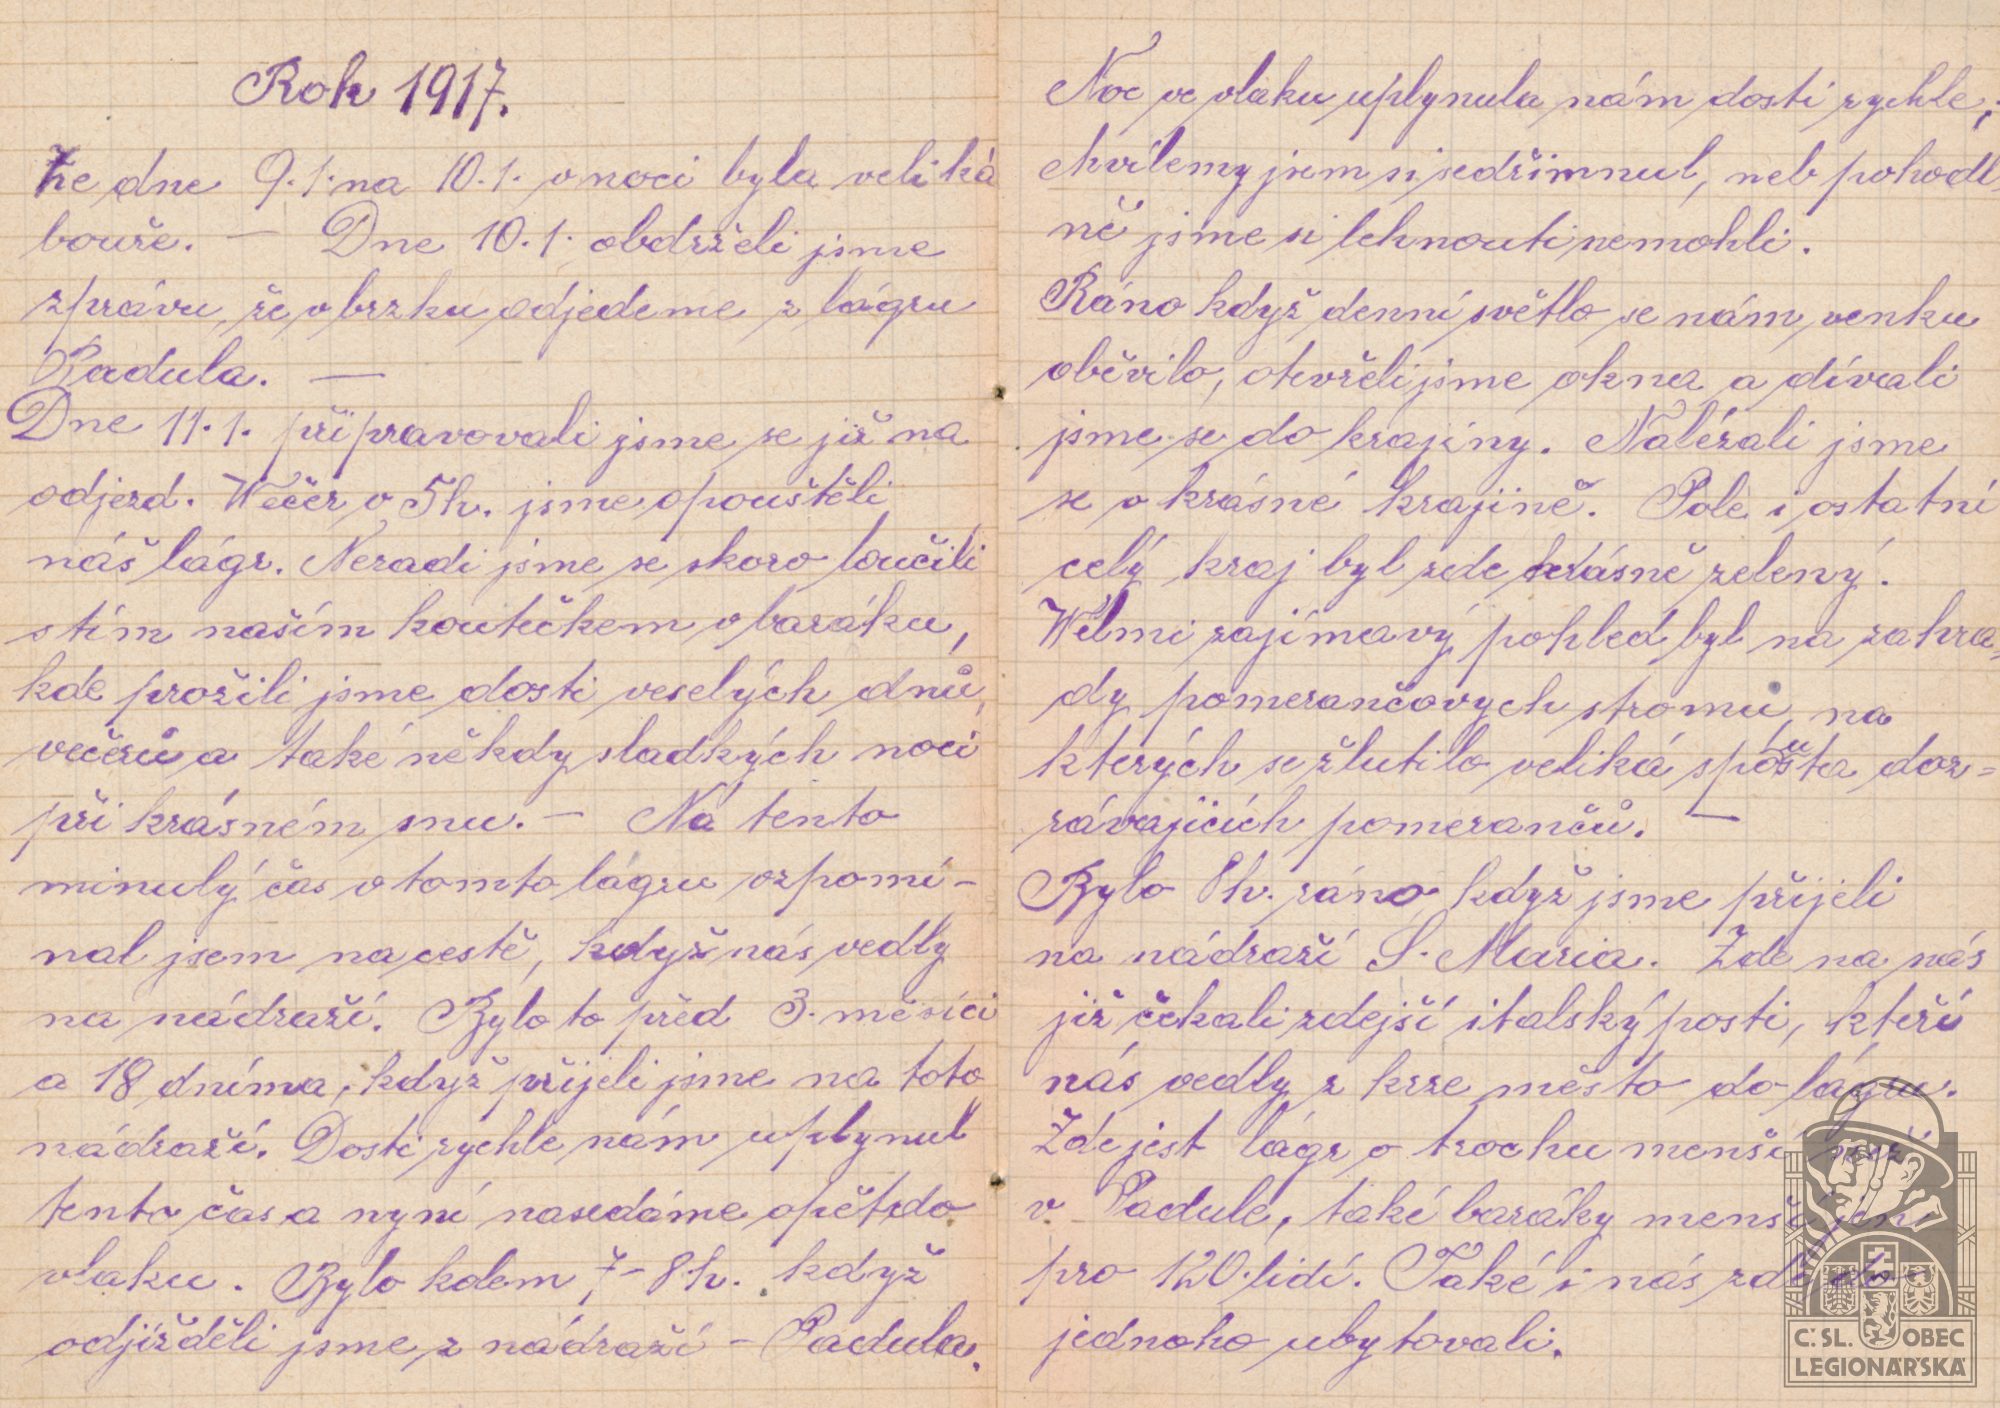 Rok 1917.
Ze dne 9.1. na 10.1. v noci byla veliká
bouře. — Dne 10.1. obdrželi jsme
zprávu, že v brzku odjedeme z lágru
Padula. —
Dne 11.1. připravovali jsme se již na
odjezd. Večer v 5h. jsme opouštěli
náš lágr. Neradi jsme se skoro loučili
s tím naším koutečkem v baráku,
kde prožili jsme dosti veselých dnů,
večerů a také někdy sladkých nocí
při krásném snu. — Na tento
minulý čas v tomto lágru vzpomí-
nal jsem na cestě, když nás vedly
na nádraží. Bylo to před 3. měsíci
a 18 dníma, když přijeli jsme na toto
nádraží. Dosti rychle nám uplynul
tento čas a nyní nasedáme opět do
vlaku. Bylo kolem 7–8h. když
odjížděli jsme z nádraží – Padula.
Noc ve vlaku uplynula nám dosti rychle,
chvílemy jsem si sedřimnul, neb pohodl-
ně jsme si lehnouti nemohli.
Ráno když denní světlo se nám venku
oběvilo, otevřeli jsme okna a dívali
jsme se do krajiny. Nalézali jsme
se v krásné krajině. Pole i ostatní
celý kraj byl zde krásně zelený.
Velmi zajímavý pohled byl na zahra-
dy pomerančovych stromu, na
kterých se žlutilo veliká spousta doz=
rávajících pomerančů. —
Bylo 8h. ráno když jsme přijeli
na nádraží S. Maria. Zde na nás
již čekali zdejší italský posti, kteří
nás vedly z krze město do lágru.
Zde jest lágr o trochu menší než
v Padule, také baráky menší jen
pro 120 lidí. Také i nás zde do
jednoho ubytovali.
Č.SL. OBEC
LEGIONÁŘSKÁ